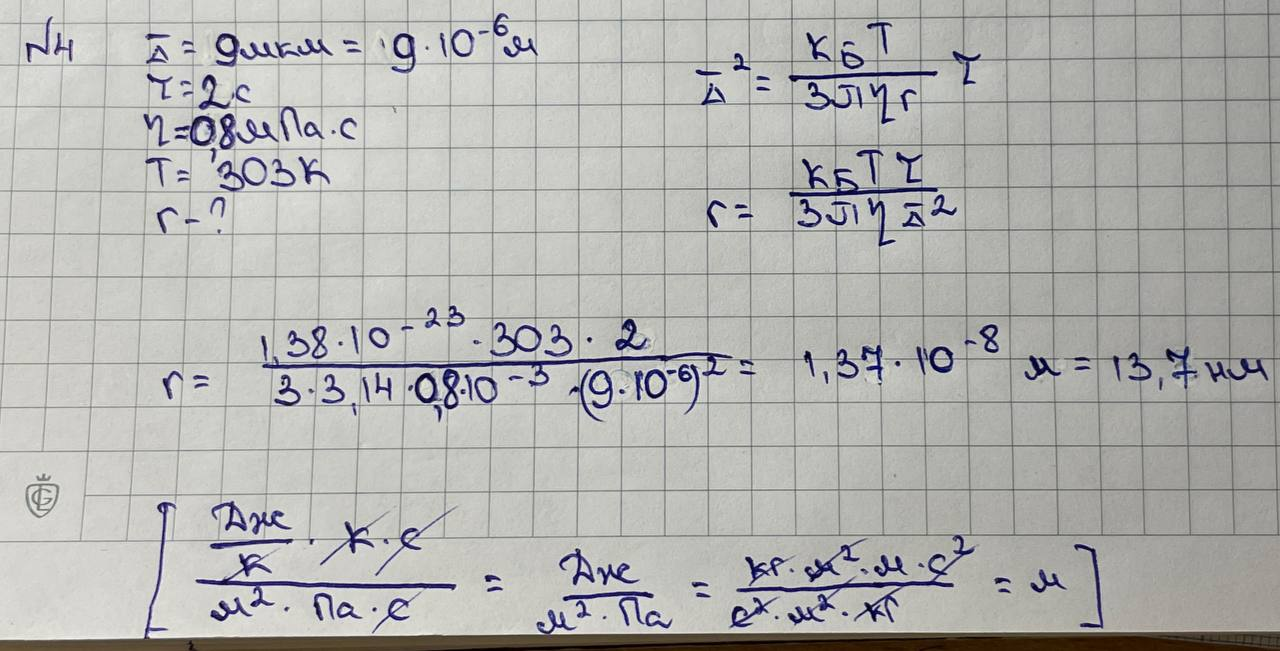 №4 Δ̅ = 9мкм = 9·10⁻⁶м
τ=2с
η=0,8мПа·с
T= 303К
r-?
Δ̅² = (кБ T)/(3πηr) τ
r = (кБ T τ)/(3πη Δ̅²)
r = (1,38·10⁻²³·303·2)/(3·3,14·0,8·10⁻³·(9·10⁻⁶)²) = 1,37·10⁻⁸ м = 13,7нм
[ (Дж/К · К·с)/(м²·Па·с) = Дж/(м²·Па) = (кг·м²·м·с²)/(с²·м²·кг) = м ]